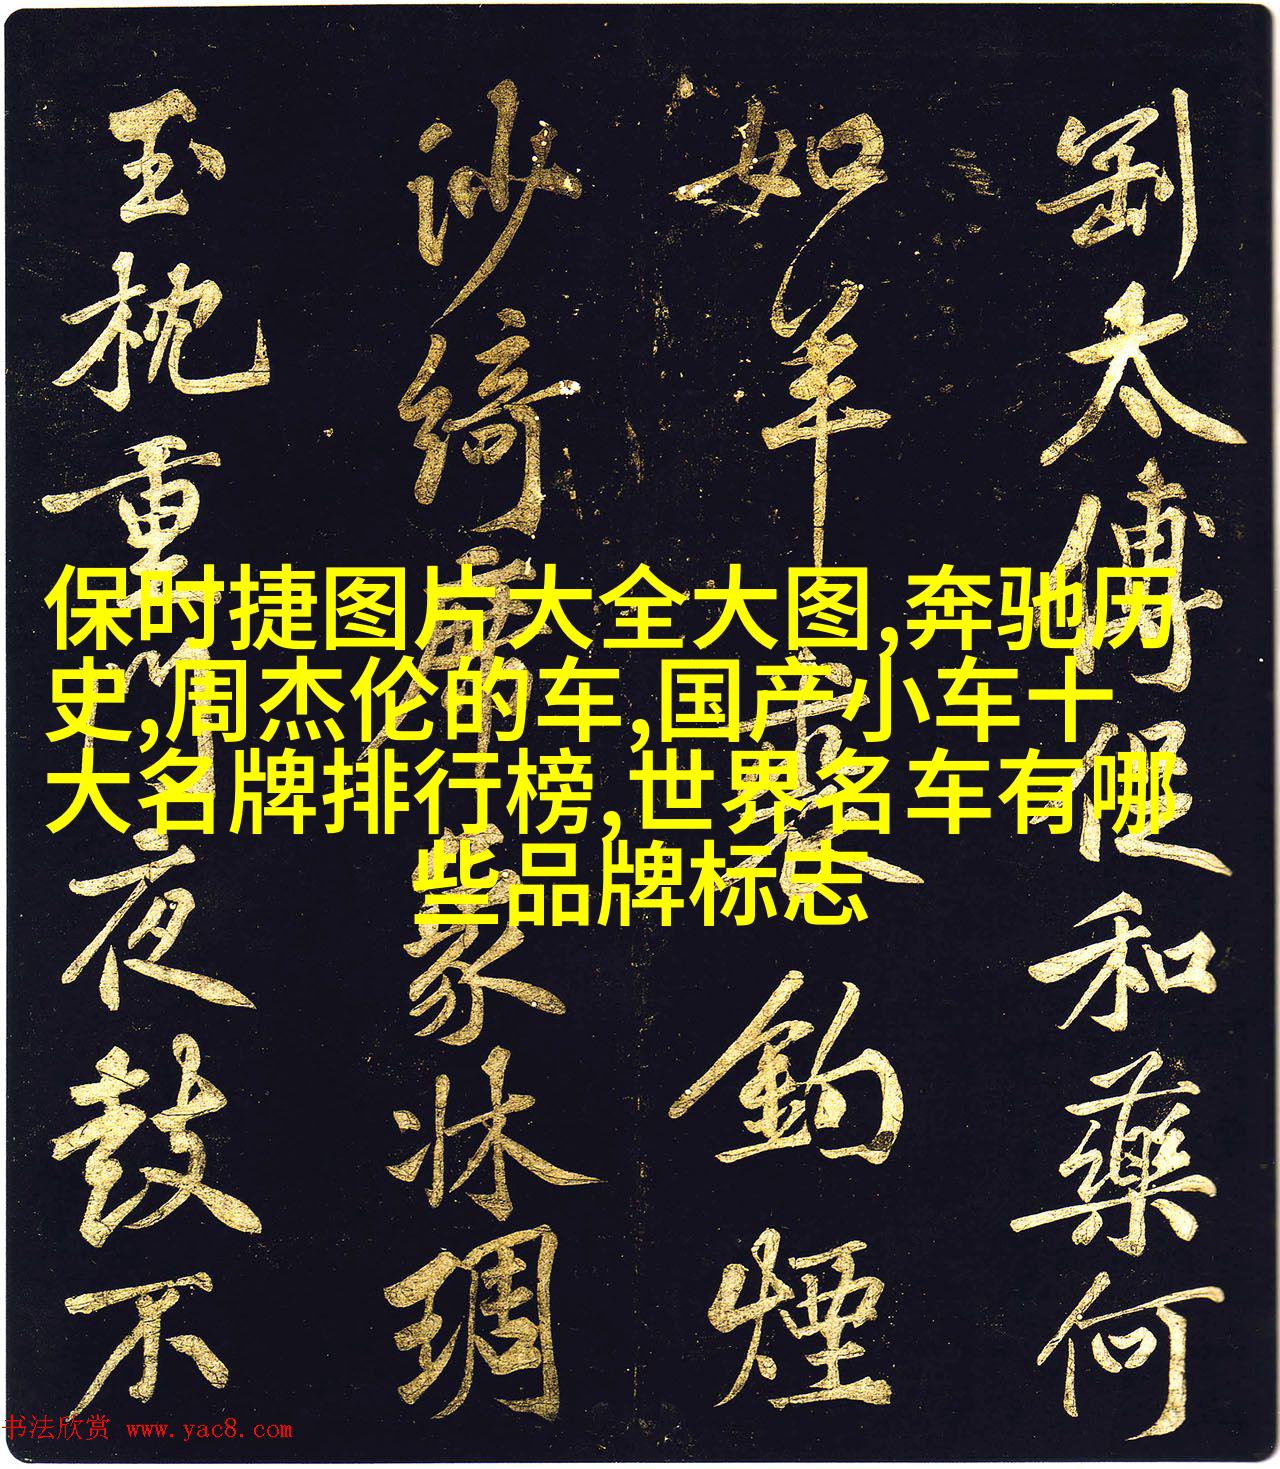 劉太傅促和藥何
如羊
鉤煙
沙綺席象牀琱
玉枕重門夜鼓不
保时捷图片大全大图,奔驰历
史,周杰伦的车,国产小车十
大名牌排行榜,世界名车有哪
些品牌标志
书法欣赏 www.yac8.com